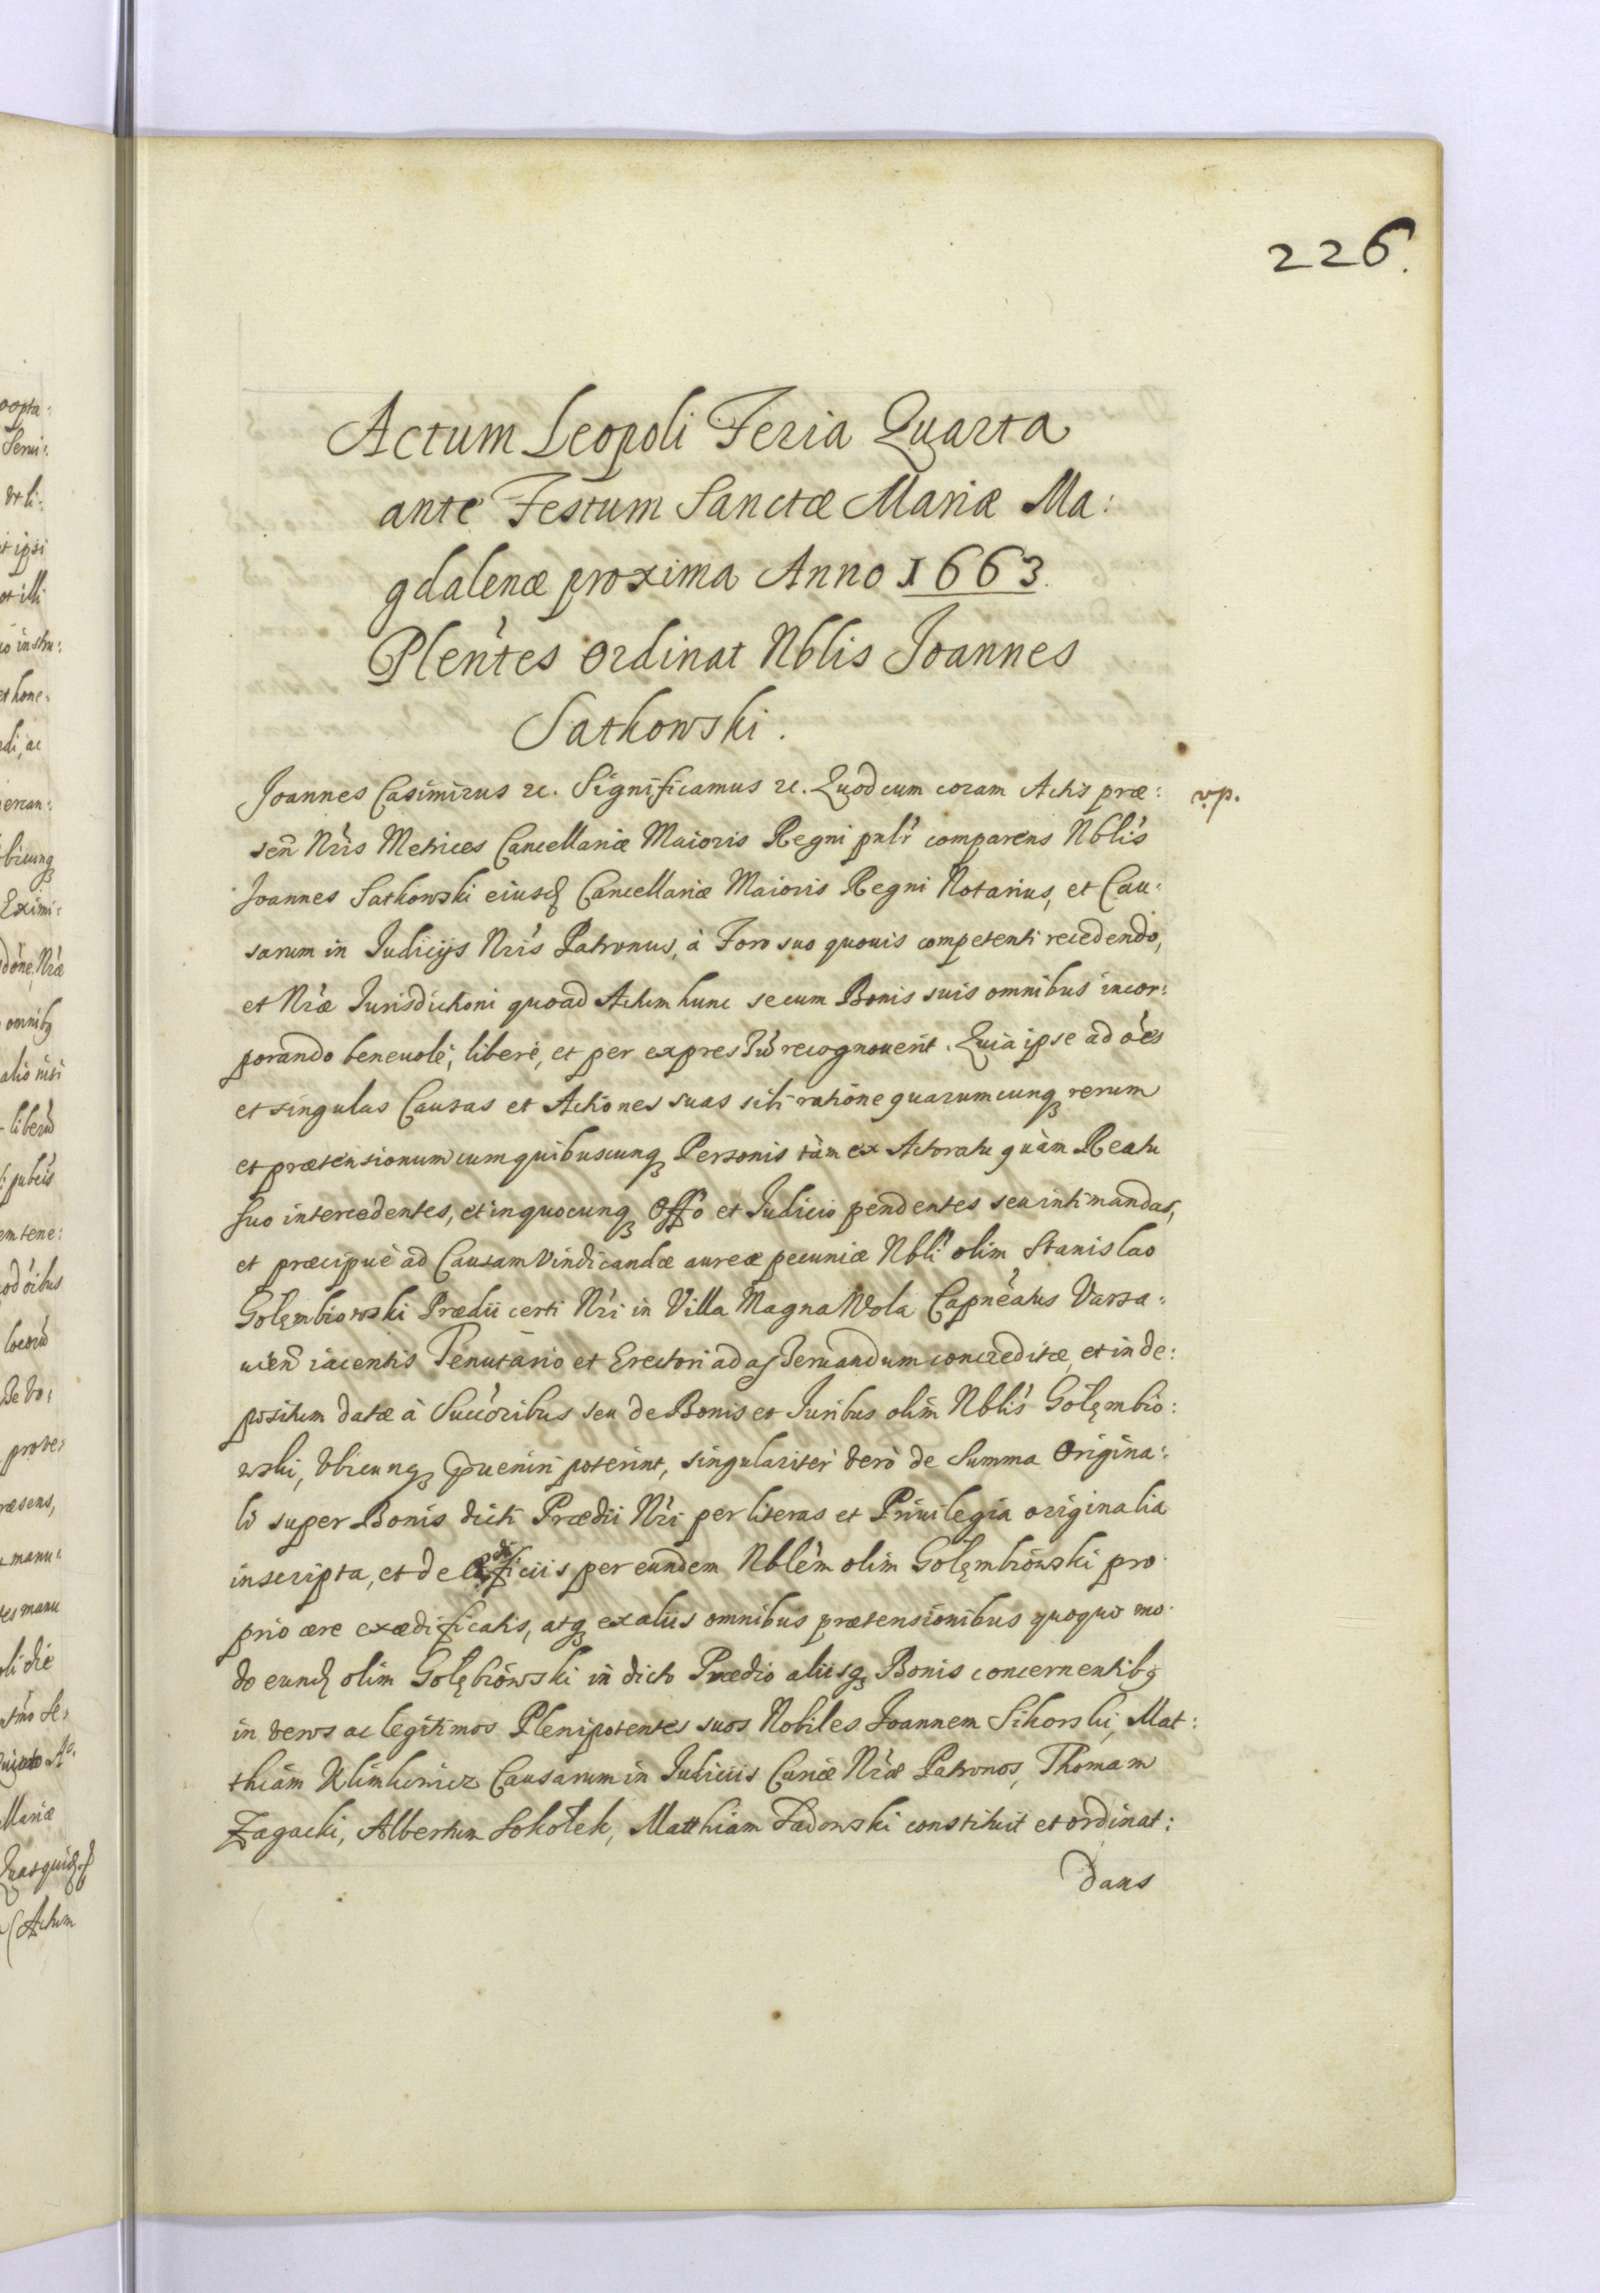 226.
Actum Leopoli Feria Quarta
ante Festum Sanctæ Mariæ Ma:
gdalenæ proxima Anno 1663.
Plen̄tes ordinat Nblis Joannes
Sathowski.
Joannes Casimirus &c. Significamus &c. Quod cum coram Actis præ: vp.
sen̄ Nr̄is Metrices Cancellariæ Maioris Regni publ̄r comparens Nblis
Joannes Sathowski eiusd̄ Cancellariæ Maioris Regni Notarius, et Cau:
sarum in Judicijs Nr̄is Patronus, à Foro suo quouis competenti recedendo,
et Nr̄æ Jurisdictioni quoad Actum hunc se cum Bonis suis omnibus incor:
porando beneuolè, liberè, et per expressū recognouerit. Quia ipse ad oēs
et singulas Causas et Actiones suas sibi ratione quarumcunq̨ rerum
et prætensionum cum quibuscunq̨ Personis tàm ex Actoratu quàm Reatu
suo intercedentes, et in quocunq̨ Offō et Judicio pendentes seu intimandas,
et præcipuè ad Causam vindicandæ aureæ pecuniæ Nbli olim Stanislao
Golęmbiowski Prædii certi Nr̄i in Villa Magna Wola Capnēatus Varsa:
uien̄ iacentis Tenutario et Erectori ad asseruandum concreditæ, et in de:
positum datæ à Succōribus seu de Bonis et Juribus olim Nblis Golęmbio:
wski, vbicunq̨ p̄ueniri poterint, singulariter verò de Summa Origina:
li super Bonis dicti Prædii Nr̄i per literas et Priuilegia originalia
inscripta, et de ædificiis per eundem Nblēm olim Golęmbiowski pro
prio ære exædificatis, atq̨ ex aliis omnibus prætensionibus quoquo mo
do eund̄ olim Golębiowski in dicto Prædio aliisq̨ Bonis concernentibꝰ
in veros ac legitimos Plenipotentes suos Nobiles Joannem Sikorski, Mat:
thiam Klimkiewicz Causarum in Judiciis Curiæ Nr̄æ Patronos, Thomam
Zagacki, Albertum Sokołek, Matthiam Sadowski constituit et ordinat:
dans